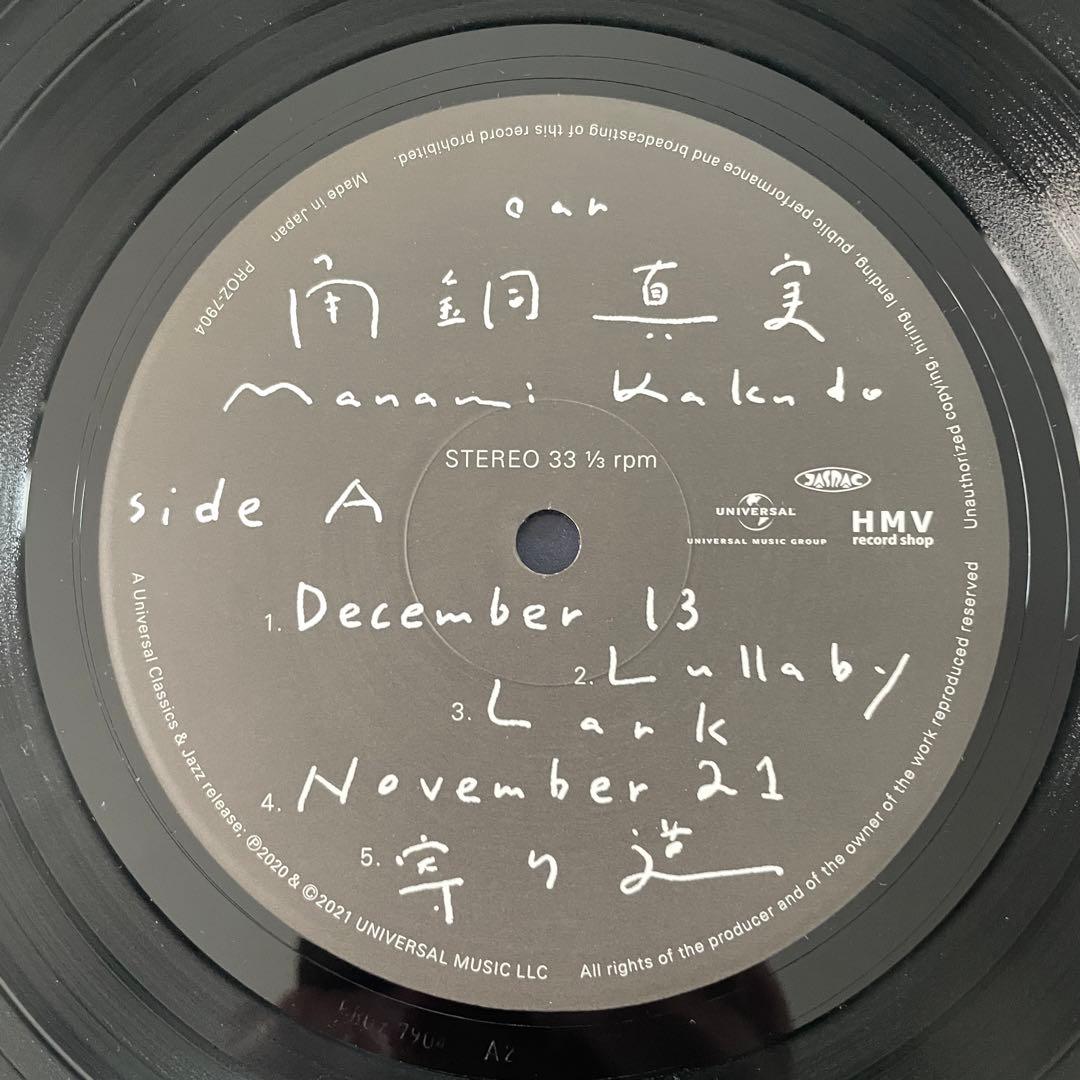 oar
角銅真実
Manami Kakudo
STEREO 33 ⅓ rpm
side A
JASRAC
UNIVERSAL
UNIVERSAL MUSIC GROUP
HMV
record shop
1. December 13
2. Lullaby
3. Lark
4. November 21
5. 寄り道
A Universal Classics & Jazz release; ℗2020 & ©2021 UNIVERSAL MUSIC LLC
All rights of the producer and of the owner of the work reproduced reserved
Unauthorized copying, hiring, lending, public performance and broadcasting of this record prohibited.
Made in Japan
PROZ-7904
PROZ 7904 A2